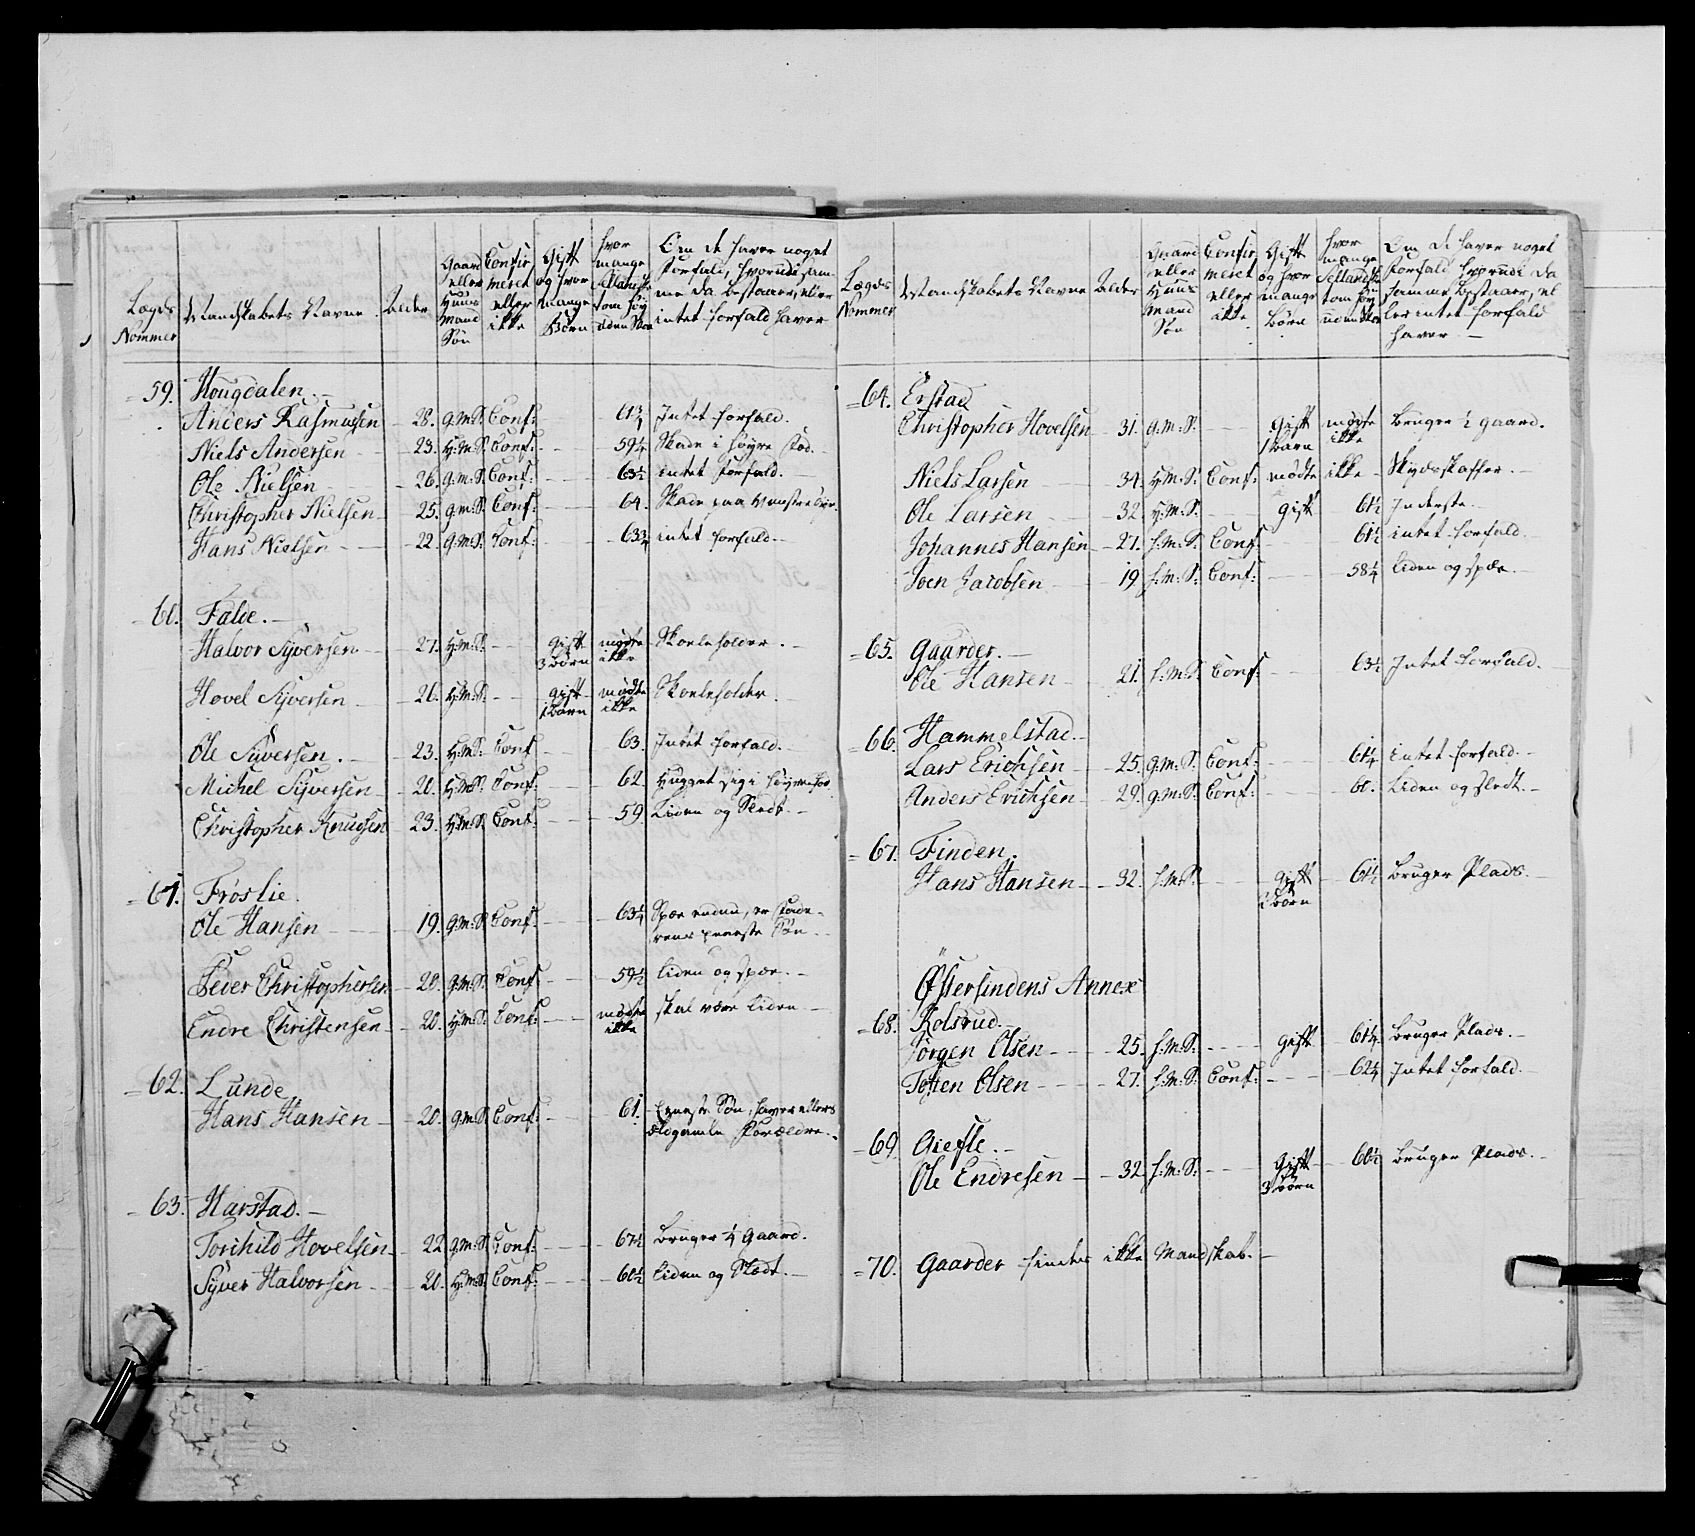 Lægds Nommer
Mandskabets Navne
Alder
Gaard eller Huus Mand Søn
Confirmeret eller ikke
Gift og hvor mange Børn
hvor mange Sellandske tom høy uden Skoe
Om de haver noget forfald, hvorudi samme da bestaaer, eller intet forfald haver
59. Hougdalen.
Anders Rasmussen 28. G.M.S. Conf: 61¾ Intet forfald.
Niels Andersen 23. H.M.S. Conf: 59¼ Skade i høyre fod.
Ole Nielsen 26. G.M.S. Conf: 63½ intet forfald.
Christopher Nielsen 25. G.M.S. Conf: 64. Skade paa venstre
Hans Nielsen 22. G.M.S. Conf: 63¾ intet forfald.
60. Falde.
Halvor Syversen 27. H.M.S. gift 3 børn mødte ikke Skoleholder.
Hovel Syversen 26. H.M.S. gift 1 barn mødte ikke Skoleholder
Ole Syversen. 23. H.M.S: Conf 63. Intet forfald.
Michel Syversen 20. H.M.S. Conf: 62. Hugget sig i høyre
Christopher Knudsen 23. H.M.S. Conf: 59. Liden og Sledt.
61. Frøslie.
Ole Hansen 19. G.M.S. Conf: 63¼ Spæe endnu, er Fade-
rens eeneste Søn.
Sever Christophersen 20. G.M.S. Conf: 59½ liden og spæe.
Endre Christensen 20. H.M.S. Conf: mødte ikke skal være liden
62. Lunde
Hans Hansen 20. G.M.S. Conf: 61. Eeneste Søn, haver ellers
ældgamle Forældre.
63. Harstad.
Torchild Hovelsen 22. G.M.S. Conf: 67½ bruger ¼ Gaard.
Syver Halvorsen 20. H.M.S. Conf: 60½ liden og Slædt.
Lægds Nommer
Mandskabets Navne
Alder
Gaard eller Huus Mand Søn
Confirmeret eller ikke
Gift og hvor mange børn
hvor mange Sellandske tom høy uden Skoe
Om de haver noget forfald hvorudi da samme bestaaer, eller intet forfald haver
64. Erstad
Christopher Hovelsen 31. G.M.S. gift 1 barn mødte ikke bruger ½ gaard.
Niels Larsen 34. H.M.S. Conf: mødte ikke Skydsskaffer.
Ole Larsen 32. H.M.S. gift 61½ Inderste.
Johannes Hansen 21. H.M.S: Conf 61½ intet forfald.
Joen Jacobsen 19. H.M.S: Conf: 58¼ liden og spæe.
65. Gaarder.
Ole Hansen 21. H.M.S. Conf: 63½ Intet forfald.
66. Hammelstad.
Lars Erichsen 25. G.M.S. Conf: 61¼ intet forfald.
Anders Erichsen 29. G.M.S. Conf: 60. liden og slædt.
67. Finden.
Hans Hansen 32. H.M.S. gift 2 børn 61½ bruger Plads.
Østersindens Annex
68. Kolsrud.
Jørgen Olsen 25. H.M.S: gift 61¼ bruger Plads.
Tosten Olsen 27. H.M.S. Conf: 62¼ Intet forfald.
69. Giefle.
Ole Endresen 32. H.M.S: gift 3 børn 60½ bruger Plads.
70. Gaarder findes ikke Mandskab.